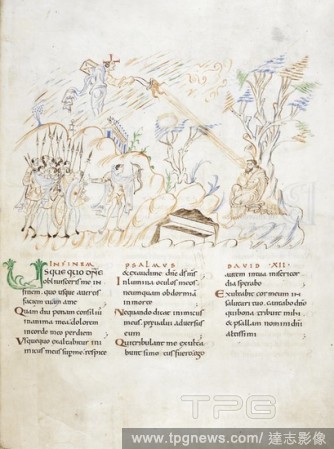 IN FINEM
Usque quo dñe
obliuisceris me in
finem quo usque auertis
faciem tuam a me
Quam diu ponam consiliu
in anima mea dolorem
in corde meo per diem
Usquequo exaltabitur ini
micus meus sup me respice
PSALMUS
& exaudi me dñe dš mš
Inlumina oculos meos
ne umquam obdormia
in morte
Nequando dicat inimicus
meus praeualui aduersus
eum
Qui tribulant me exulta
bunt si motus fuero ego
DAVID XII
autem in tua misericor
dia sperabo
Exultabit cor meum in
salutari tuo cantabo dño
qui bona tribuit mihi
& psallam nomini dñi
altissimi
TPG
www.tpgnews.com / 達志影像